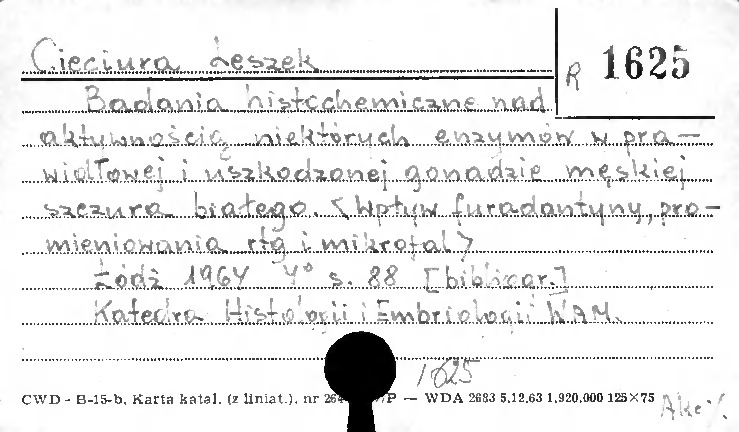 Cieciura Leszek
R 1625
Badania histochemiczne nad
aktywnością niektórych enzymów w pra-
widłowej i uszkodzonej gonadzie męskiej
szczura białego. <Wpływ furadantyny, pro-
mieniowania rtg i mikrofal>
Łódź 1964 4° s. 88 [bibliogr.]
Katedra Histologii i Embriologii WAM.
1625
CWD - B-15-b, Karta katal. (z liniat.), nr P — WDA 2683 5,12,63 1,920,000 125×75